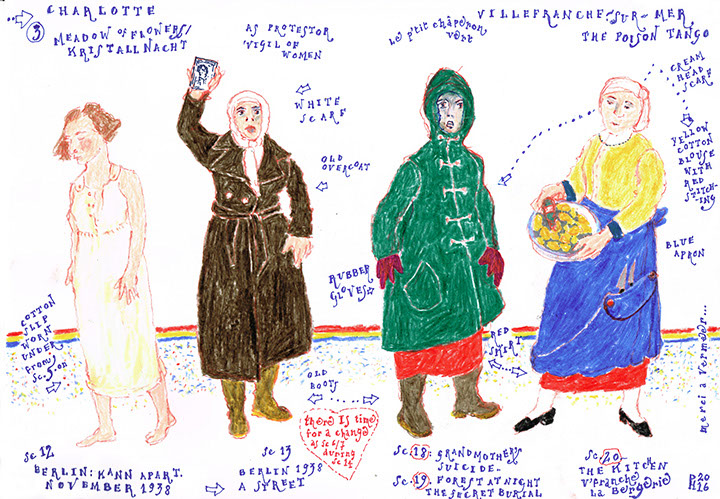 CHARLOTTE
3
MEADOW OF FLOWERS/
KRISTALLNACHT
AS PROTESTOR
VIGIL OF
WOMEN
Le p'tit chapron
vert
VILLEFRANCHE-SUR-MER,
THE POISON TANGO
WHITE
SCARF
OLD
OVERCOAT
CREAM
HEAD
SCARF
YELLOW
COTTON
BLOUSE
WITH
RED
STITCH-
ING
BLUE
APRON
RUBBER
GLOVES
COTTON
SLIP
WORN
UNDER
from
Sc. 5. on
RED
SKIRT
OLD
BOOTS
there IS time
for a change
as Sc 6/7
during
Sc 14
merci à Vermeer...
Sc 12
BERLIN: KANN APART.
NOVEMBER 1938
Sc 13
BERLIN 1938
A STREET
Sc. 18: GRANDMOTHER'S
SUICIDE..
Sc. 19. FOREST AT NIGHT
THE SECRET BURIAL
Sc. 20-
THE KITCHEN
V'franche
Bergerie